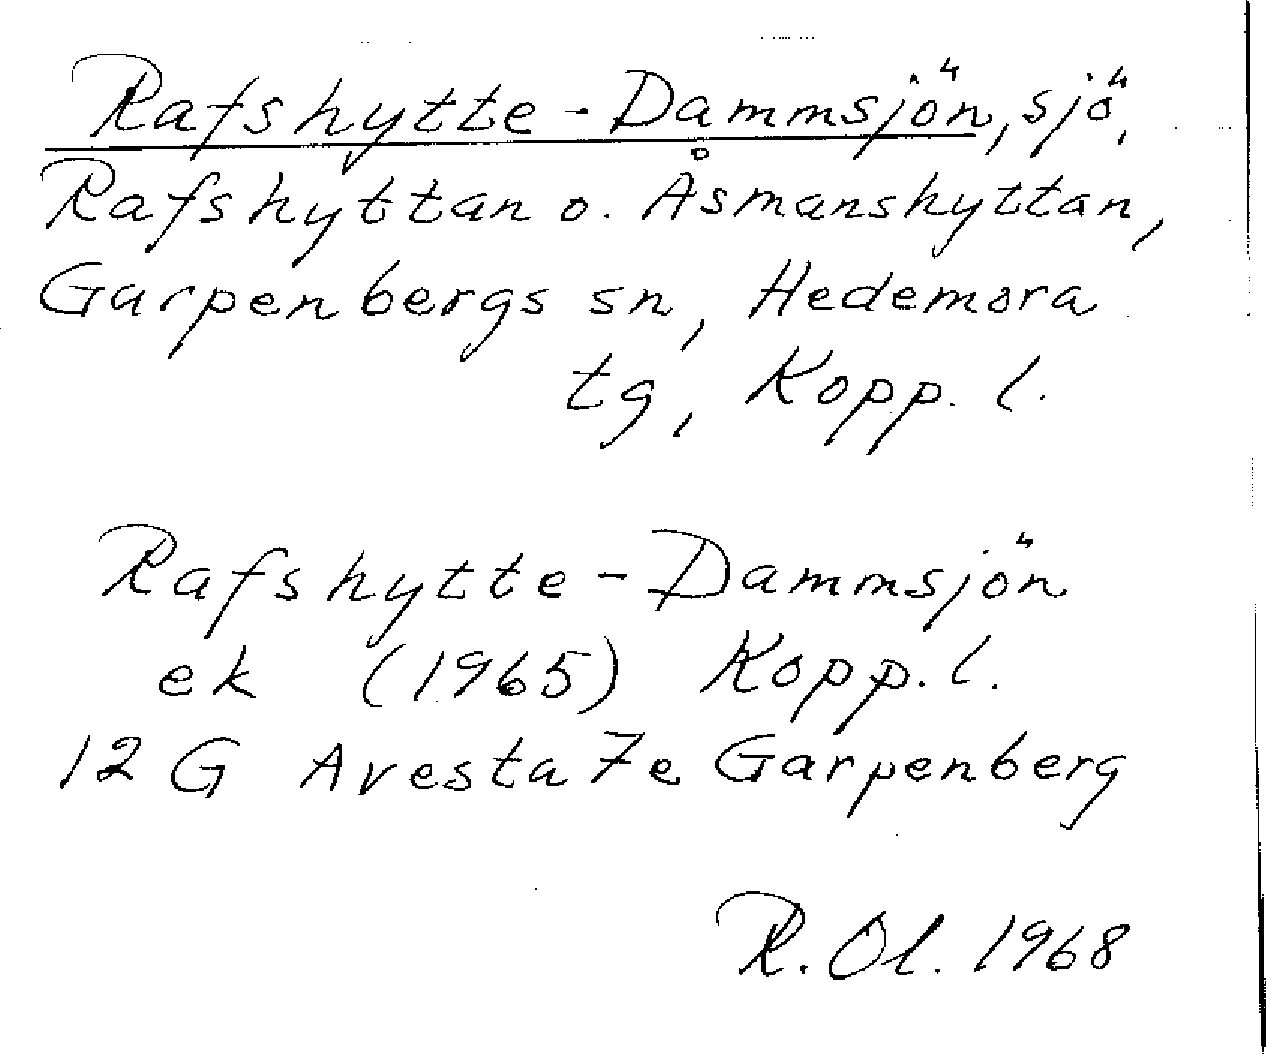 Rafshytte-Dammsjön, sjö,
Rafshyttan o. Åsmanshyttan,
Garpenbergs sn, Hedemora
tg, Kopp. l.
Rafshytte-Dammsjön
ek (1965) Kopp. l.
12 G Avesta 7e Garpenberg
R. Ol. 1968